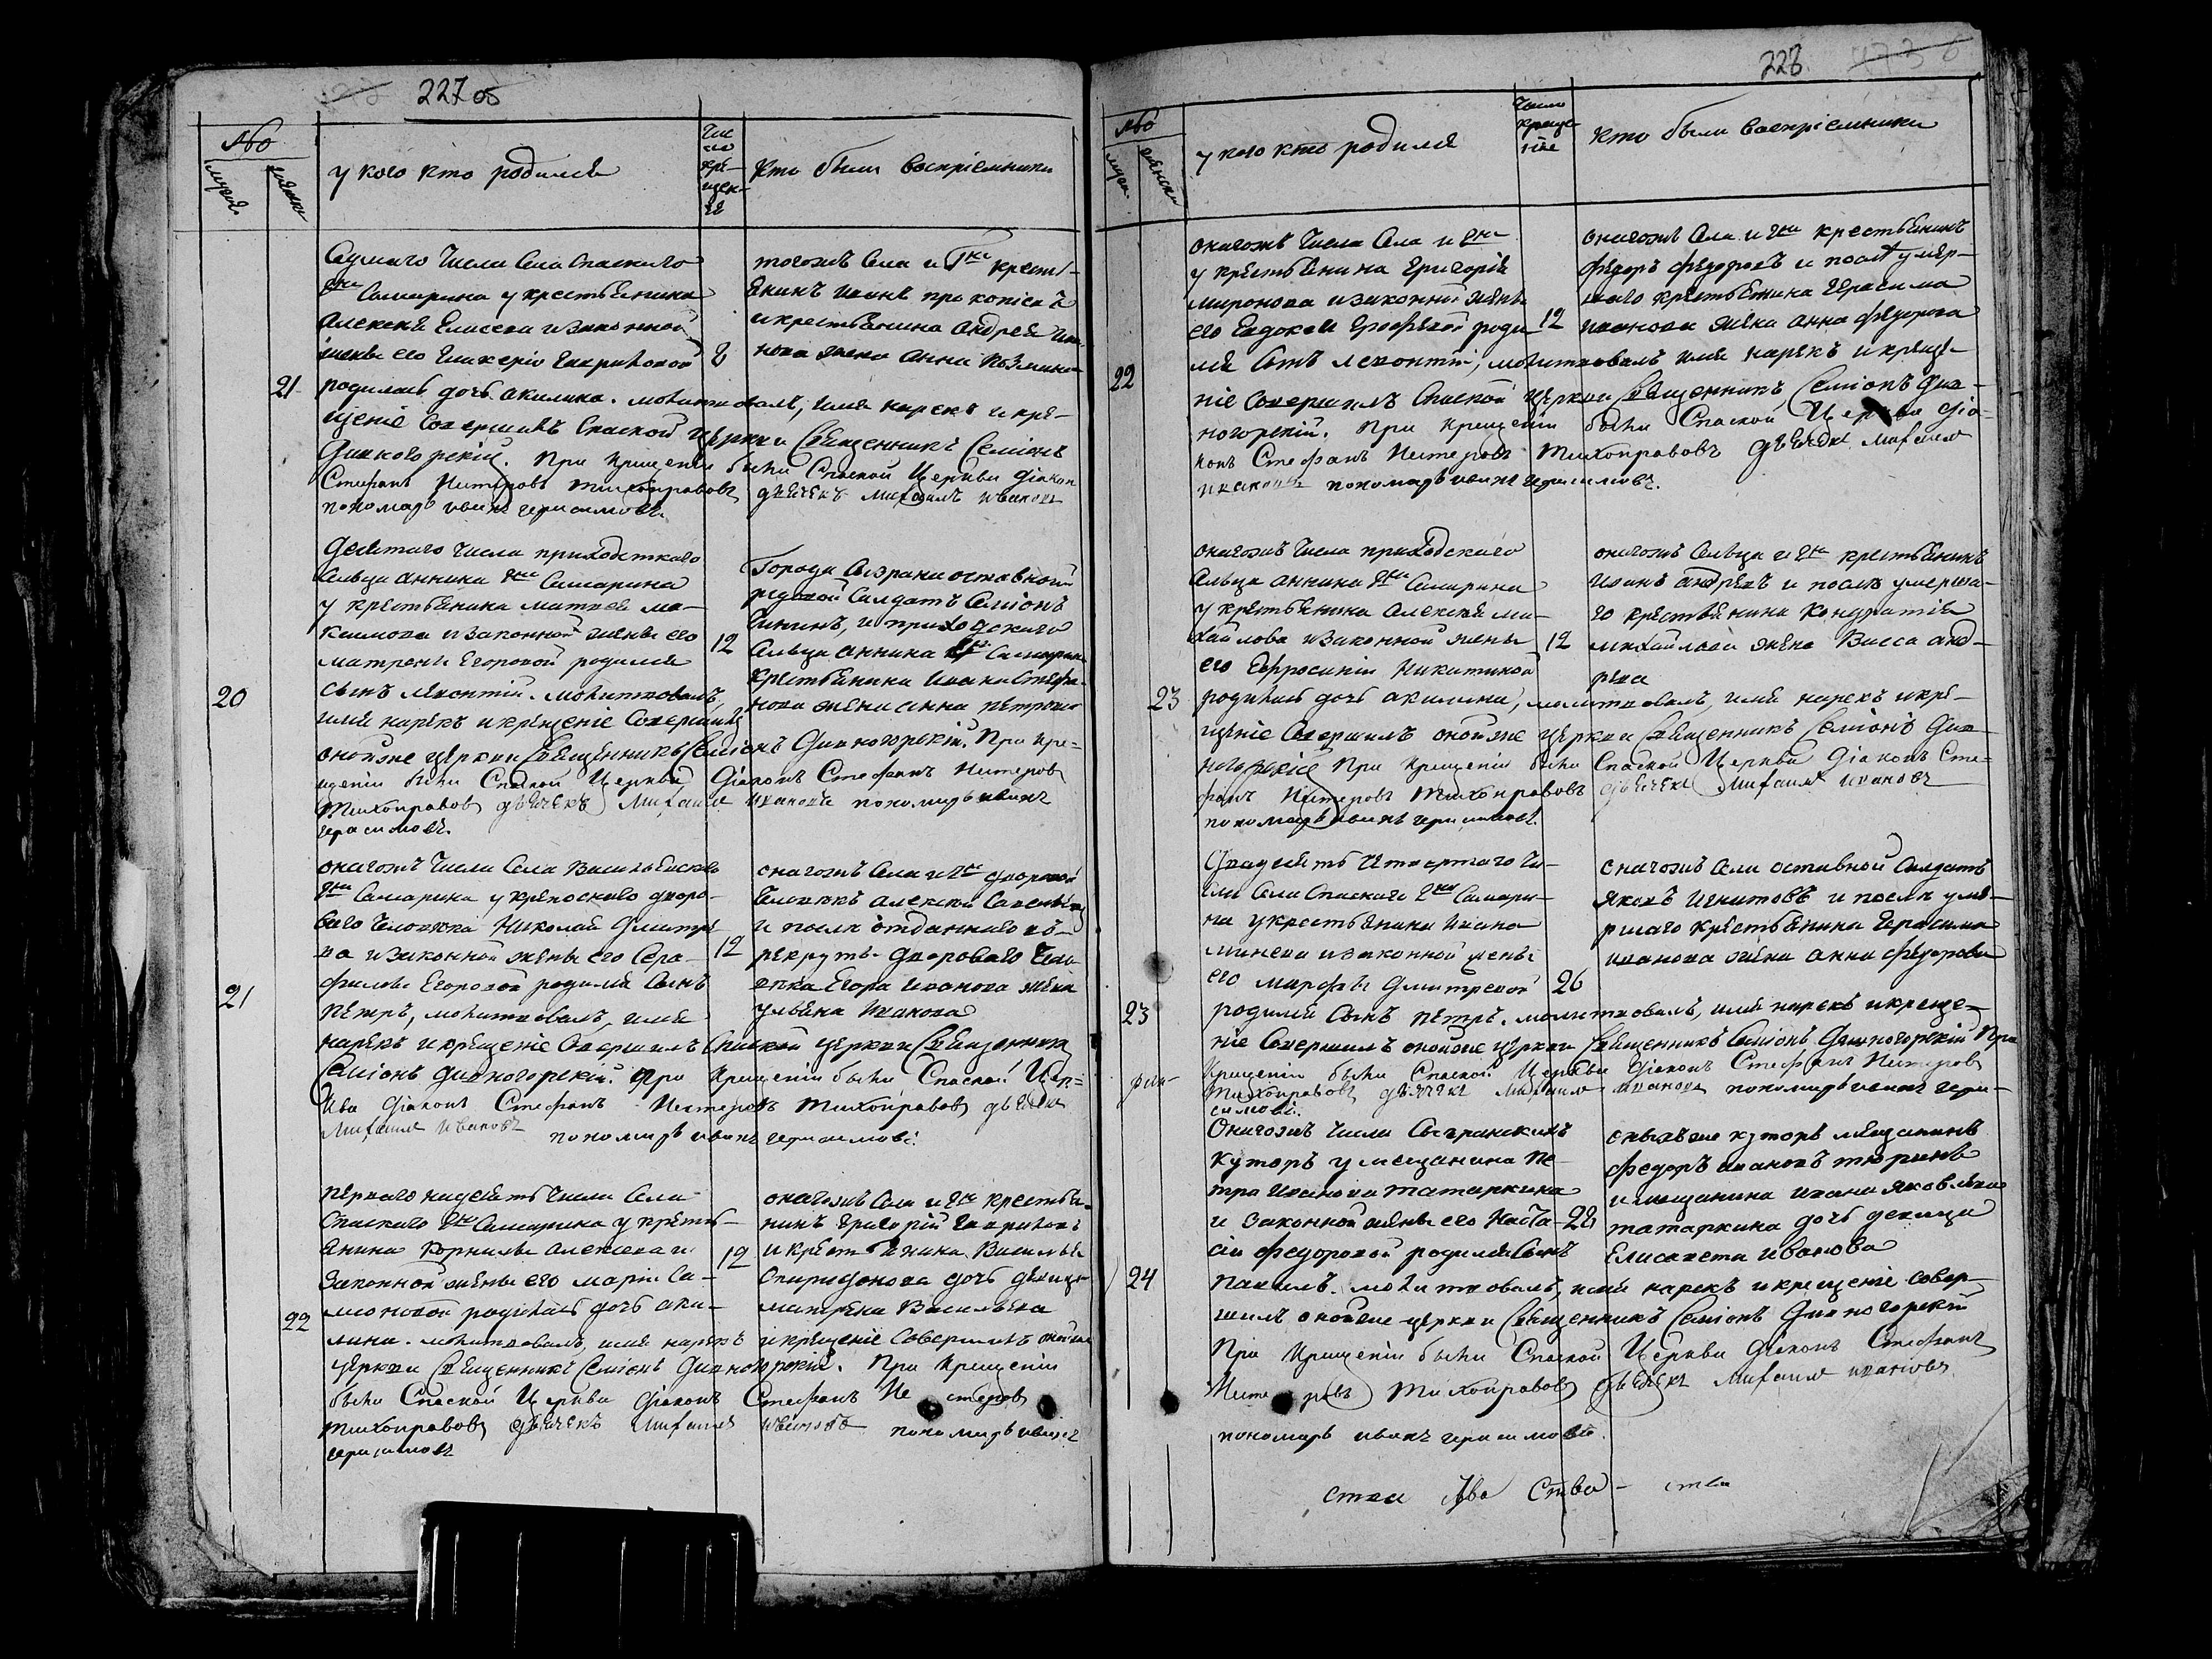 227 об
№
мужеск
женск
у кого кто родился
Чис
ло
кре-
щен-
ія
кто были воспріемники
Седмаго числа села Спаскаго
Гна Самарина у крестьянина
Алексея Елисеева и законной
жены его Гликеріи Гавриловой
8
21
родилась дочь Акилина. молитвовалъ, имя нарекъ и кре-
щеніе совершилъ Спаской церкви священникъ Семіонъ
Дивногорскій. При крещеніи были Спаской Церкви діаконъ
Стефанъ Нестеровъ Тихонравовъ дьячекъ Михаилъ Ивановъ
пономарь Иванъ Герасимовъ.
тогожъ села и Гна кресть-
янинъ Иванъ Прокопіевъ
и крестьянина Андрея Ива-
нова жена Анна Козмина
Десятаго числа приходскаго
сельца Аннина Гна Самарина
у крестьянина Матвея Ма-
каимова и законной жены его
12
Матрены Егоровой родился
20
сынъ Леонтій. молитвовалъ,
имя нарекъ и крещеніе совершилъ
онойже церкви священникъ Семіонъ Дивногорскій. При кре-
щеніи были Спаской Церкви Діаконъ Стефанъ Нестеровъ
Тихонравовъ дьячекъ Михаилъ Ивановъ пономарь Иванъ
Герасимовъ.
Города Сызрани оставной
рядовой салдатъ Семіонъ
и приходскаго
сельца Аннина Гна Самарина
крестьянина Ивана Стефа-
нова жена Анна Петрова
онагожъ числа села Васильевскаго
Гна Самарина у крепоснаго дворо-
ваго человека Николая Дмитріе-
ва и законной жены его Сера-
12
фимы Егоровой родился сынъ
21
Петръ, молитвовалъ, имя
нарекъ и крещеніе совершилъ Спаской церкви священникъ
Семіонъ Дивногорскій. При крещеніи были Спаской Цер-
кви діаконъ Стефанъ Нестеровъ Тихонравовъ дьячекъ
Михаилъ Ивановъ пономарь Иванъ Герасимовъ.
онагожъ села и Гна дворовой
человекъ Алексей Савельевъ
и после отданнаго въ
рекруты двороваго чело-
века Егора Иванова жена
Ульяна Иванова
Перваго надесять числа села
Спаскаго Гна Самарина у кресть-
янина Корнилы Алексеева и
12
законной жены его Маріи Са-
моновой родилась дочь Аки-
22
лина. молитвовалъ, имя нарекъ и крещеніе совершилъ онойже
церкви священникъ Семіонъ Дивногорскій. При крещеніи
были Спаской Церкви діаконъ Стефанъ Нестеровъ
Тихонравовъ дьячекъ Михаилъ Ивановъ пономарь Иванъ
Герасимовъ
онагожъ села и Гна крестья-
нинъ Григорій Гавриловъ
и крестьянина Василья
Спиридонова дочь девица
Матрена Васильева
228
№
муж
женск
у кого кто родился
Число
креще-
нія
кто были воспріемники
онагожъ числа села и Гна
у крестьянина Григорія
Миронова и законной жены
его Евдокеи Ерофеевой роди-
12
22
лся сынъ Леонтій, молитвовалъ имя нарекъ и креще-
ніе совершилъ Спаской церкви священникъ Семіонъ Див-
ногорскій. При крещеніи были Спаской Церкви діа-
конъ Стефанъ Нестеровъ Тихонравовъ дьячекъ Михаилъ
Ивановъ пономарь Иванъ Герасимовъ.
онагожъ села и Гна крестьянинъ
Федоръ Федоровъ и после умер-
шаго крестьянина Герасима
Иванова жена Анна Федорова
онагожъ числа приходскаго
сельца Аннина Гна Самарина
у крестьянина Алексея Ми-
хайлова и законной жены
12
его Ефросиніи Никитиной
23
родилась дочь Акилина, молитвовалъ, имя нарекъ и кре-
щеніе совершилъ онойже церкви священникъ Семіонъ Див-
ногорскій При крещеніи были Спаской Церкви Діаконъ Сте-
фанъ Нестеровъ Тихонравовъ дьячекъ Михаилъ Ивановъ
пономарь Иванъ Герасимовъ.
онагожъ сельца и Гна крестьянинъ
Иванъ Андреевъ и после умерша-
го крестьянина Кондратія
Михайлова жена Васса Анд-
реева
Двадесять четвертаго чи-
сла села Спаскаго Гна Самари-
на у крестьянина Ивана
Минеева и законной жены
его Марфы Дмитревой
26
23
родился сынъ Петръ. молитвовалъ, имя нарекъ и креще-
ніе совершилъ онойже церкви священникъ Семіонъ Дивногорскій При
крещеніи были Спаской Церкви діаконъ Стефанъ Нестеровъ
Тихонравовъ дьячекъ Михаилъ Ивановъ пономарь Иванъ Гера-
симовъ.
онагожъ села оставной салдатъ
Яковъ Игнатовъ и после уме-
ршаго крестьянина Герасима
Иванова жена Анна Федорова
Онагожъ числа Сызранскихъ
хуторъ у мещанина Пе-
тра Иванова Татаркина
и законной жены его Наста-
28
сіи Федоровой родился сынъ
24
Павелъ. молитвовалъ, имя нарекъ и крещеніе совер-
шилъ онойже церкви священникъ Семіонъ Дивногорскій
При крещеніи были Спаской Церкви діаконъ Стефанъ
Нестеровъ Тихонравовъ дьячекъ Михаилъ Ивановъ
пономарь Иванъ Герасимовъ.
оныхъже хуторъ мещанинъ
Федоръ Ивановъ Тюринъ
и мещанина Ивана Яковлева
Татаркина дочь девица
Елисавета Иванова